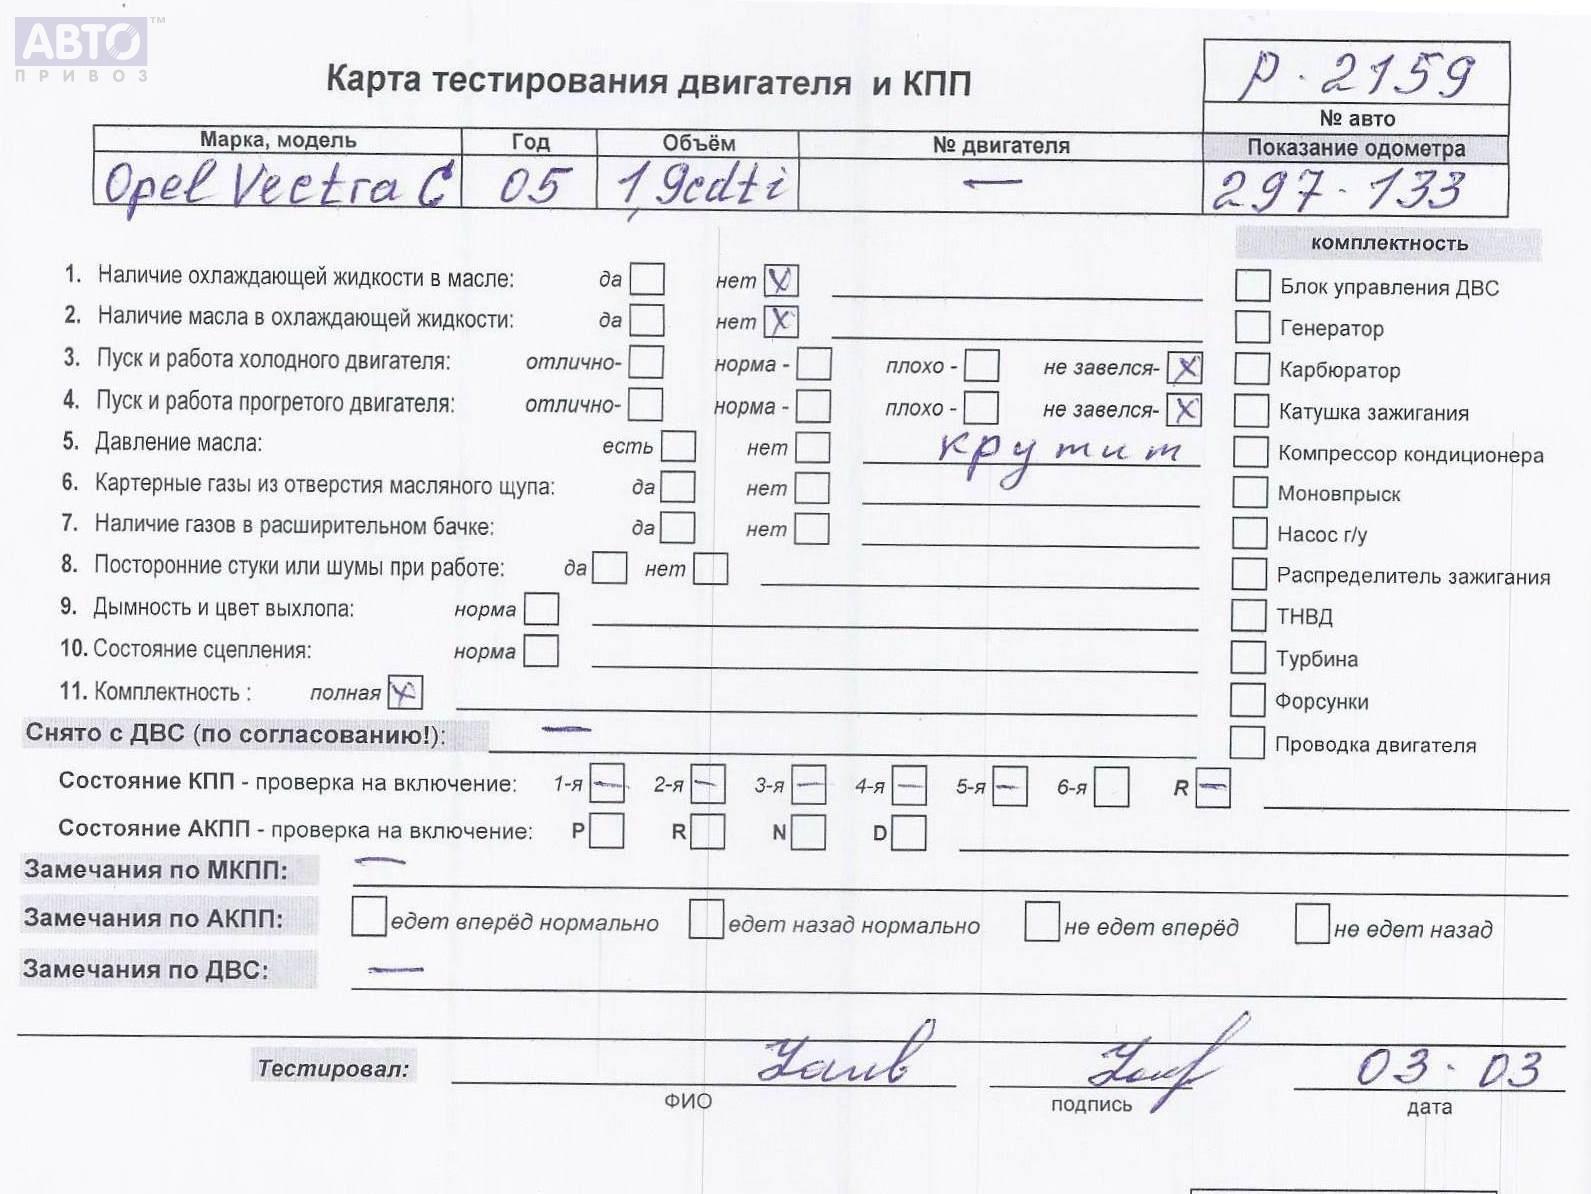 АВТО™
ПРИВОЗ
Карта тестирования двигателя и КПП
р - 2159
№ авто
Марка, модель Год Объём № двигателя Показание одометра
Opel Vectra C 05 1,9cdti — 297-133
комплектность
1. Наличие охлаждающей жидкости в масле: да нет X
Блок управления ДВС
2. Наличие масла в охлаждающей жидкости: да нет X
Генератор
3. Пуск и работа холодного двигателя: отлично- норма - плохо - не завелся- X
Карбюратор
4. Пуск и работа прогретого двигателя: отлично- норма - плохо - не завелся- X
Катушка зажигания
5. Давление масла: есть нет крутит
Компрессор кондиционера
6. Картерные газы из отверстия масляного щупа: да нет
Моновпрыск
7. Наличие газов в расширительном бачке: да нет
Насос г/у
8. Посторонние стуки или шумы при работе: да нет
Распределитель зажигания
9. Дымность и цвет выхлопа: норма
ТНВД
10. Состояние сцепления: норма
Турбина
11. Комплектность : полная X
Форсунки
Снято с ДВС (по согласованию!): —
Проводка двигателя
Состояние КПП - проверка на включение: 1-я — 2-я — 3-я — 4-я — 5-я — 6-я R —
Состояние АКПП - проверка на включение: P R N D
Замечания по МКПП: —
Замечания по АКПП: едет вперёд нормально едет назад нормально не едет вперёд не едет назад
Замечания по ДВС: —
Тестировал: 03-03
ФИО подпись дата